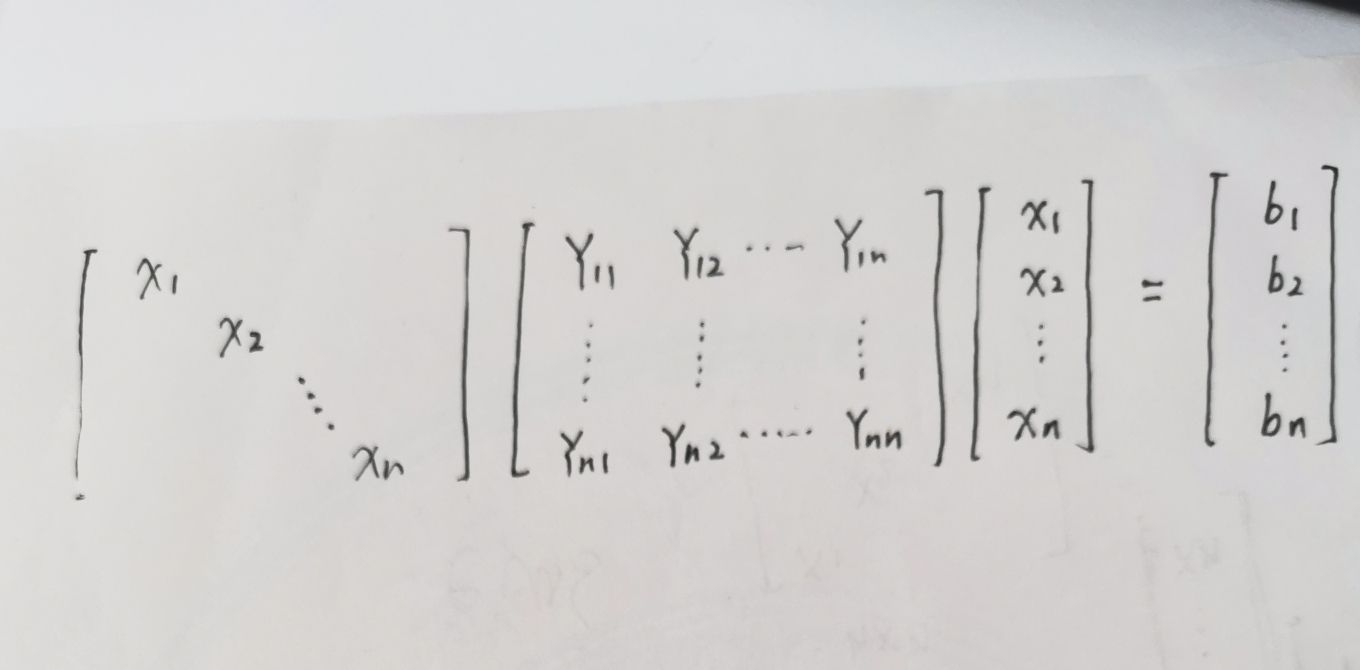 [ x₁ x₂ ⋱ xₙ ] [ Y₁₁ Y₁₂ ⋯ Y₁ₙ ⋮ ⋮ ⋮ Yₙ₁ Yₙ₂ ⋯ Yₙₙ ] [ x₁ x₂ ⋮ xₙ ] = [ b₁ b₂ ⋮ bₙ ]